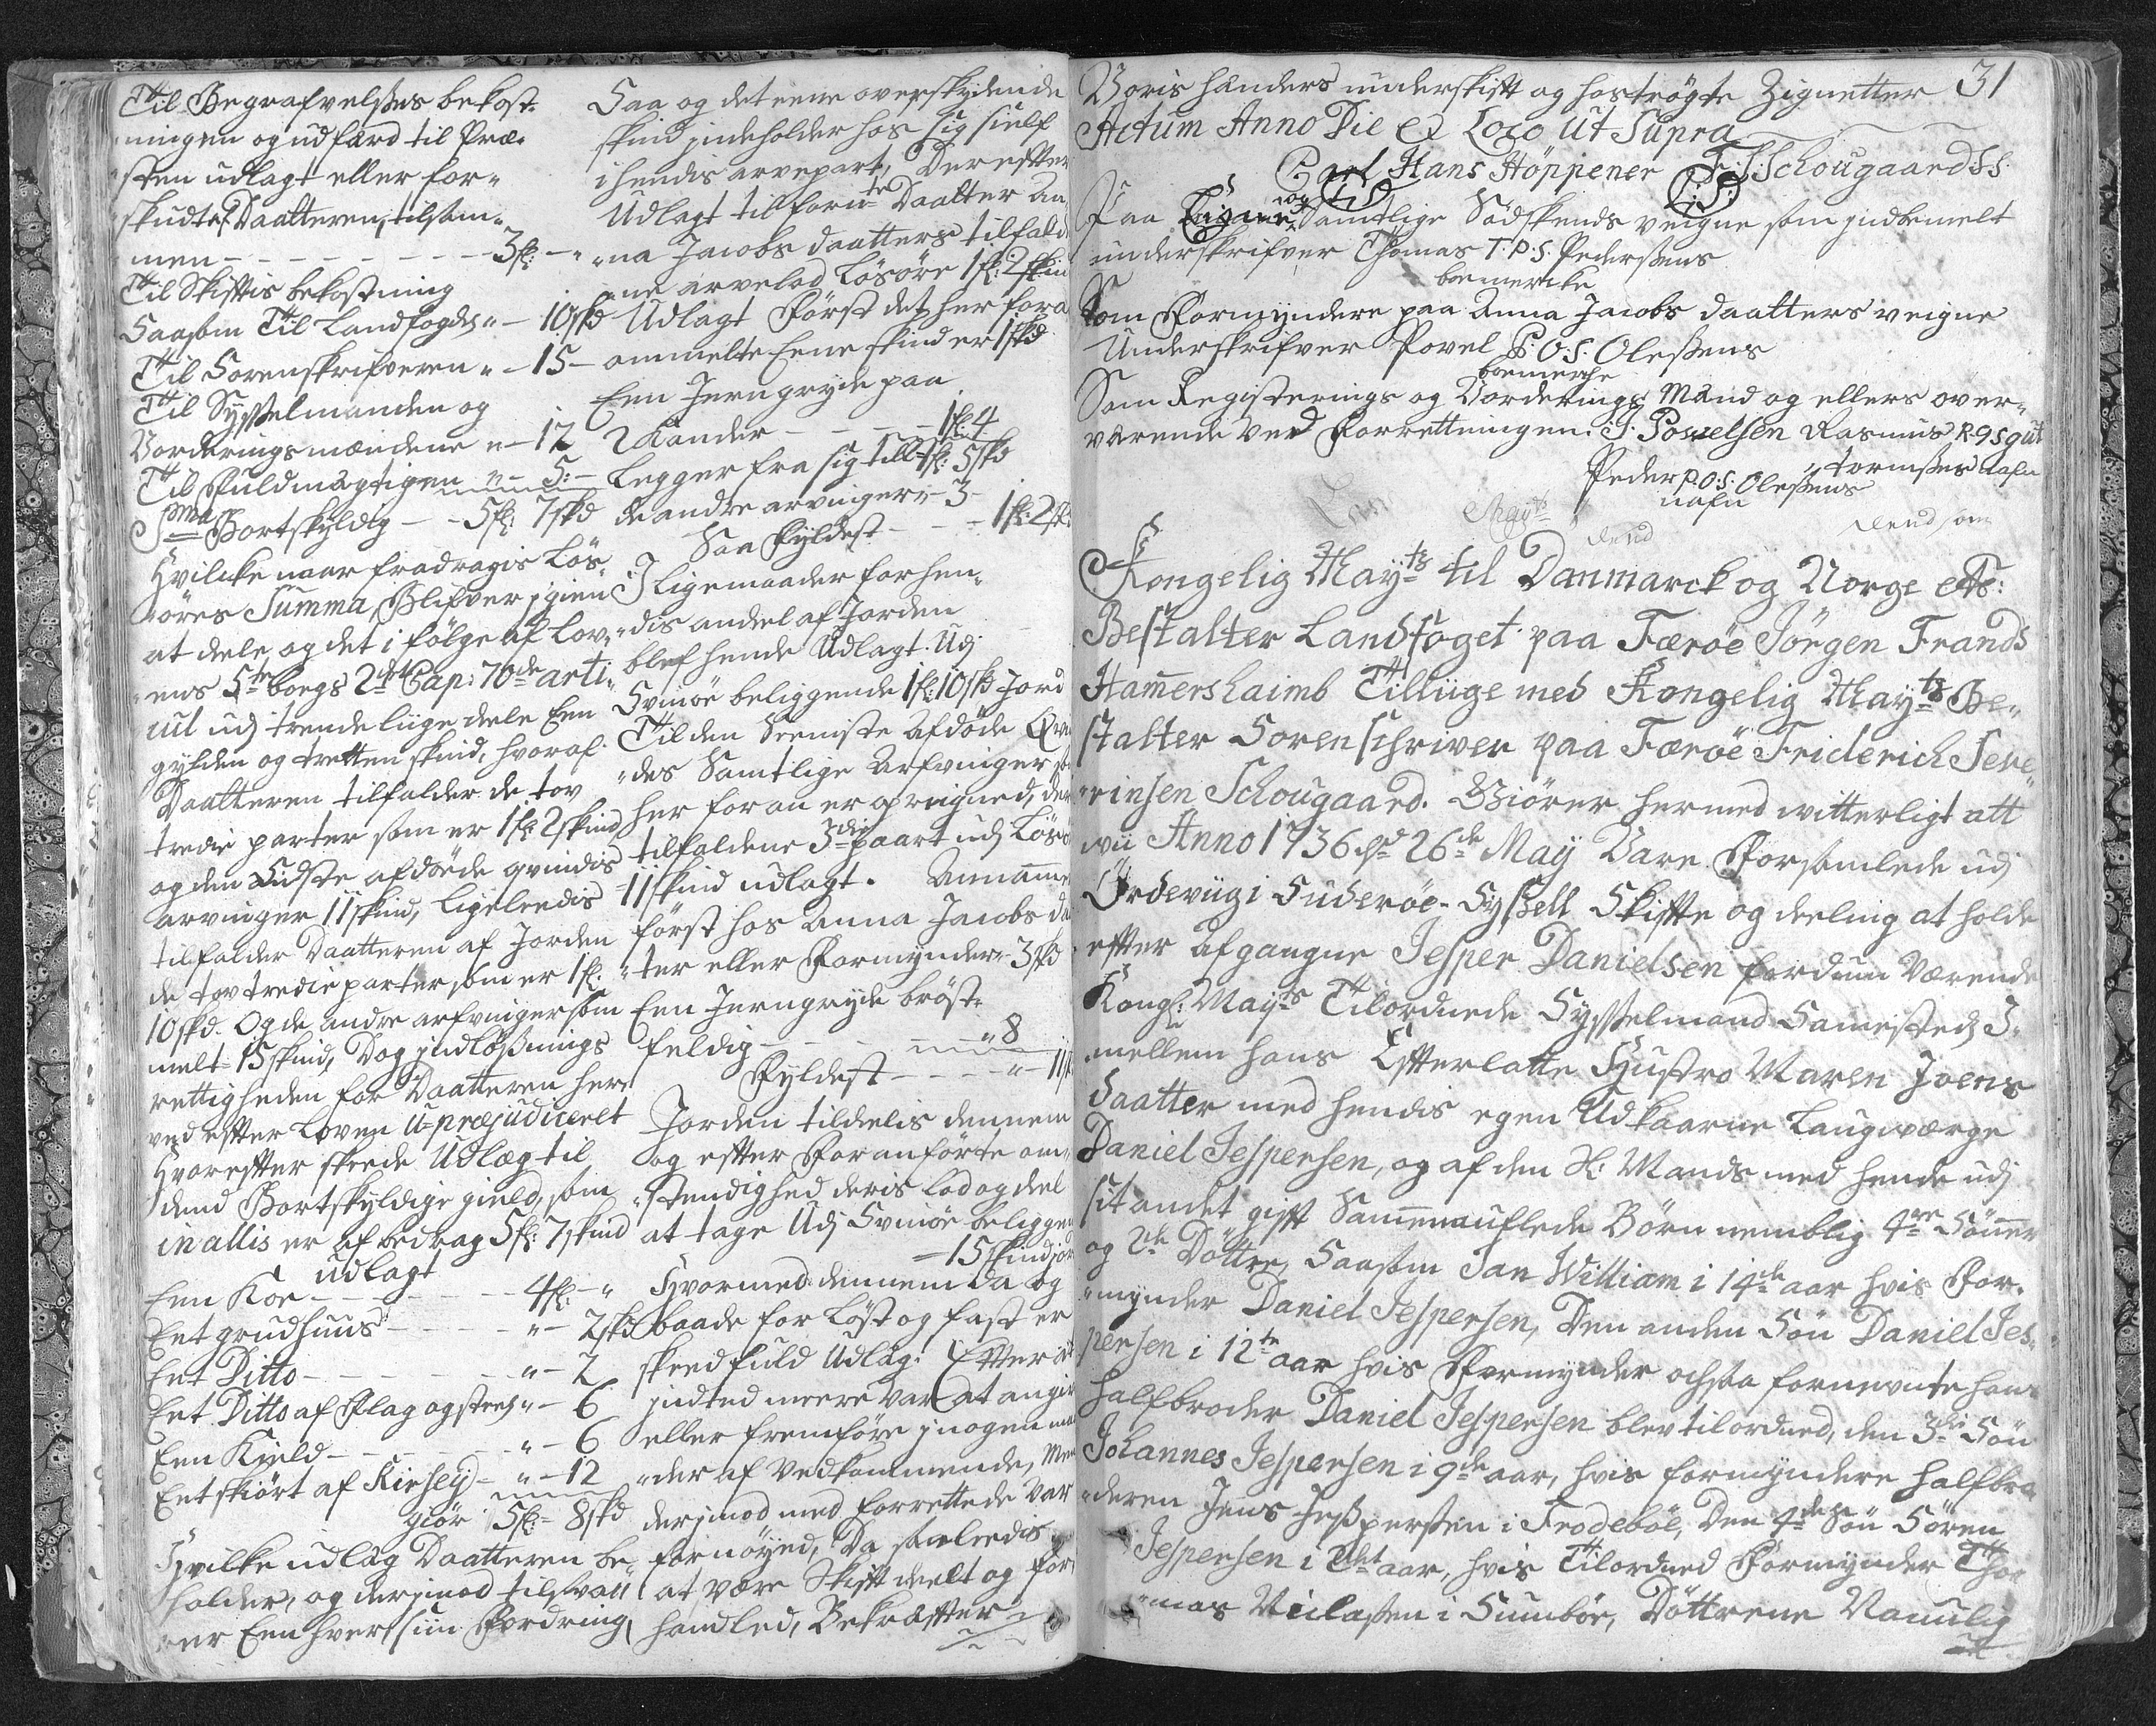 Til Begrafvelsens bekost-
ningen og udfærd til Præ-
sten udlagt eller for-
skudt af Daatteren, tilsam-
men - - - 3 fl: - "
Til Skiftis bekostning
Saasom Til Landfogden " - 10 skd
Til Sorenskrifveren " - 15 -
Til Sysselmanden og
Vorderings mændene " - 12
Til Fuldmægtigen " - 5: -
Sma Bortskyldig - - 5 fl: 7 skd
Hvilcke naar fradragis Løs-
øres Summa, Blifver igien
at deele og det i følge af Lov-
ens 5te bogs 2det Cap: 70de arti-
cul udj trende liige deele Een
gylden og tretten skind, hvoraf
Daatteren tilfalder de tov
tredie parter som er 1 fl: 2 skind
og den Sidste afdøde qvindis
arvinger 11 skind, ligeleedis
tilfalder Daatteren af Jorden
de tov tredie parter som er 1 fl:
10 skd. Og de andre arfvinger som
melt 15 skind, Dog indløsnings
rettigheden for Daatteren her-
ved efter Loven U-præjudiceret
Hvorefter skeede Udlæg til
dend Bortskyldige gield, som
in allis er af bedrag 5 fl: 7 skind
udlagt
Een Koe - - - 4 fl: - "
Eet grudhuus - - - " - 2 skd
Eet Ditto - - - " - 2
Eet Ditto af Flag og steen " - 6
Een Kield - - - " - 6
Eet skiørt af Kirsey - " - 12
giør 5 fl: - 8 skd
Hvilke udlæg Daatteren be-
holder, og derimod tilsvar-
er Een hver sin Fordring
Saa og det eene overskydende
skind indeholder hos sig sielf
i hendis arvepart, Derefter
Udlagt til forn:te Daatter An-
na Jacobs daatters tilfald-
ne arvelod Løsøre 1 fl: 2 skind
Udlagt Først det her for a
ommelte Eene skind er 1 skd
Een Jerngryde paa
2 Kander - - - 1 fl: 4
Legger fra sig till 1 fl: 5 skd
de andre arvinger " - 3 -
Saa Fyldest - - - 1 fl: 2 skd
I Ligemaader for hen-
dis andel af Jorden
blef hende Udlagt. Udj
Svinøe beliggende 1 fl: 10 skd Jord
Til den Seeniste Afdøde Qvin
des Samtlige Arfvinger som
her for an er opreigned, deres
tilfaldene 3die paart udj Løsø
11 skind udlagt. Annamme
først hos Anna Jacobs da
ter eller Formynder - 3 skd
Een Jerngryde brøst-
feldig - - - " 8
Fyldest - - - " - 11 sk
Jorden tildelis dennem
og efter Foranførte om-
stendighed deris lod og deel
at tage Udj Svinøe beliggen
- 15 skind jord
Hvormed dennem da og
baade for Løst og fast er
skeed fuld Udlæg: Efter at
indted meere var at angive
eller fremføre i nogen maa
der af Vedkommende, Men
derimod med forrettede var
fornøyed, Da saaleedis
at være Skift deelt og for
handled, Bekræfter
31
Voris hænders underskift og hostrøgte Zignetter
Actum Anno Die et Loco ut Supra
Carl Hans Höppener F: S: Schougaard SS.
Paa Eigne og Samtlige Sødskends veigne som indbemelt
underskrifver Thomas T. P. S. Pedersens
boemercke
Som Formyndere paa Anna Jacobs daatters veigne
Underskrifver Povel P. O. S. Olesens
boemerche
Som Registerings og Vorderings Mænd og ellers over-
værende ved Forrettningen. J: Powelsen Rasmus R. G S gut
tormsens nafn
Peder P. O. S. Olesens
nafn
Mayts
dend
dend som
Kongelig Mayts til Danmarck og Norge etc:
Bestalter Landfoget paa Færöe Jörgen Frands
Hamershaimb Tilliige med Kongelig Mayts Be-
stalter Sorenschriver paa Færöe Friderich Seve-
rinsen Schougaard. Giører hermed witterligt att
wii Anno 1736 d 26de May Vare Forsamlede udj
Ördeviig i Suderøe-Sysell Skifte og deeling at holde
efter afgangne Jesper Danielsen fordum Værende
Kongl: Mayts Tilordnede Sysselmand Samesteds I-
mellem hans Efterlatte Hustro Maren Joens
daatter med hendis egen Udkaarne Laugværge
Daniel Jespersen, og af den Sl: Mands med hende udj
sit andet gift Sammenauflede Børn nemblig 4re Sönner
og 2de Döttre, Saasom Jan William i 14de aar hvis For-
mynder Daniel Jespersen, Den anden Sön Daniel Jes-
persen i 12te aar hvis Formynder ochsaa fornevnte hans
halfbroder Daniel Jespersen blev tilordned, den 3die Sön
Johannes Jespersen i 9de aar, hvis formyndere halfbro
deren Jens Jespersen i Frodeböe, Den 4de Sön Sören
Jespersen i 2det aar, hvis Tilordned Formynder Tho-
mas Niclasen i Sumböe, Döttrene Namnlig